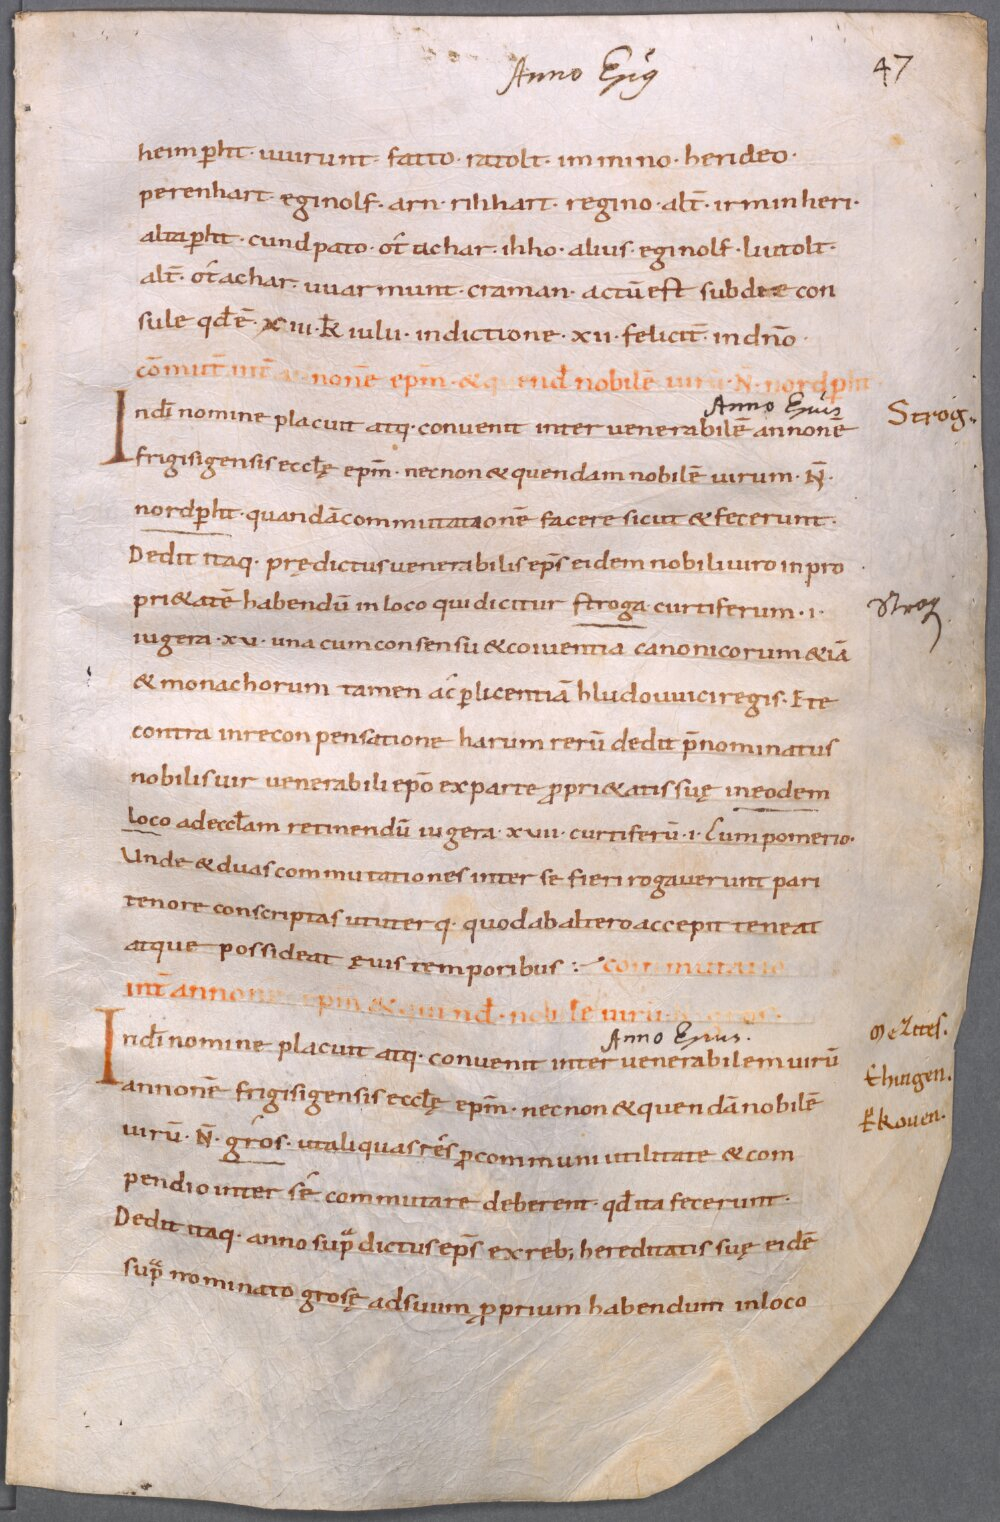 Anno Ep̄s
47
heimp̲ht· uuirunt· fatto· ratolt· immino· herideo·
perenhart· eginolf· arn· rihhart· regino· alt̄· irminheri·
altap̲ht· cundpato· ot̄achar· ihho· alius· eginolf· liutolt·
alt̄· ot̄achar· uuarmunt· craman· actū est sub die con
sule qd̄ ē· XIIII· kł iulii· indictione· XII· felicit̄· in dn̄o·
cōmut̄ int̄ nonē epīm· & quend̄ nobilē uirū· N̄· nordp̲ht
Anno
Indi nomine placuit atq· conuenit inter uenerabilē annonē
Strog.
frigisigensis eccłę epīm· necnon & quendam nobilē uirum· N̄·
nordp̲ht· quandā commutationē facere sicut & fecerunt·
Dedit itaq· prędictus uenerabilis ep̄s eidem nobili uiro in pro
pri&atē habendū in loco qui dicitur stroga· curtiferum· I·
Strog
iugera· XV· una cum consensu & conuentia canonicorum & iā
& monachorum tamen ac̄ p̲ licentiā hludouuici regis· E te
contra in reconpensatione harum rerū dedit p̄nominatus
nobilis uir uenerabili ep̄o ex parte p̲pri&atis suę in eodem
loco ad eccłam retinendū iugera· XVIII· curtiferū· I· Cum pomerio·
Unde & duas commutationes inter se fieri rogauerunt pari
tenore conscriptas ut uterq· quod ab altero accepit teneat
atque possideat ęuis temporibus :· commutatio
int̄ annone epīm & quend̄· nobile uirū·
Anno
Indi nomine placuit atq· conuenit inter uenerabilem uirū
annonē frigisigensis eccłę epīm· necnon & quendā nobilē
uirū· N̄· gros· ut aliquas res p̲ communi utilitate & com
pendio inter se commutare deberent· qd̄ ita fecerunt·
Dedit itaq· anno sup̄ dictus ep̄s ex reb; hereditatis suę eidē
sup̄ nominato grosę ad suum p̲prium habendum in loco